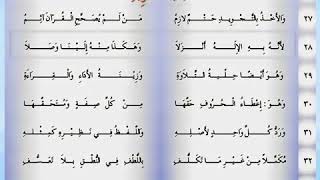 ٢٧ وَالأَخْذُ بِالتَّجْوِيدِ حَتْمٌ لَازِمُ مَنْ لَمْ يُصَحِّحِ الْقُرَآنَ آثِمُ
٢٨ لأَنَّهُ بِهِ الإِلَهُ أَنْزَلَا وَهَكَذَا مِنْهُ إِلَيْنَا وَصَلَا
٢٩ وَهُوَ أَيْضًا حِلْيَةُ التِّلَاوَةِ وَزِينَةُ الأَدَاءِ وَالْقِرَاءَةِ
٣٠ وَهُوَ: إِعْطَاءُ الْحُرُوفِ حَقَّهَا مِنْ كُلِّ صِفَةٍ وَمُسْتَحَقَّهَا
٣١ وَرَدُّ كُلِّ وَاحِدٍ لأَصْلِهِ وَاللَّفْظُ فِي نَظِيرِهِ كَمِثْلِهِ
٣٢ مُكَمِّلاً مِنْ غَيْرِ مَا تَكَلُّفِ بِاللُّطْفِ فِي النُّطْقِ بِلَا تَعَسُّفِ